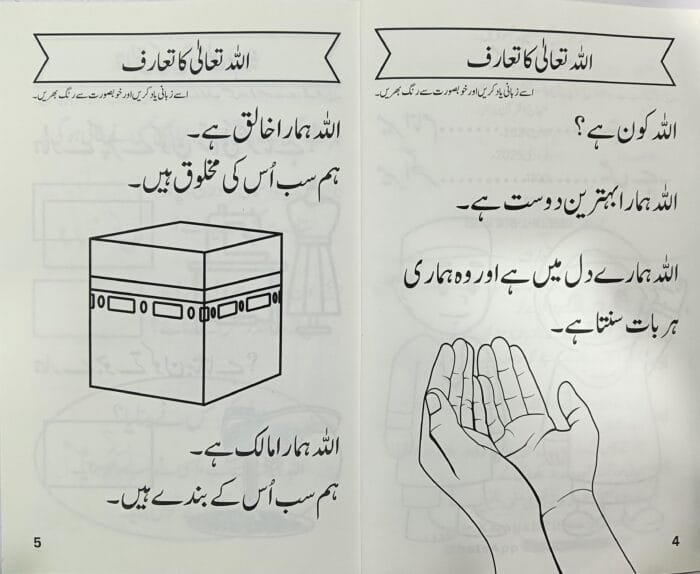 اللہ تعالیٰ کا تعارف
اسے زبانی یاد کریں اور خوبصورت سے رنگ بھریں۔
اللہ کون ہے؟
اللہ ہمارا بہترین دوست ہے۔
اللہ ہمارے دل میں ہے اور وہ ہماری
ہر بات سنتا ہے۔
4
اللہ تعالیٰ کا تعارف
اسے زبانی یاد کریں اور خوبصورت سے رنگ بھریں۔
اللہ ہمارا خالق ہے۔
ہم سب اُس کی مخلوق ہیں۔
اللہ ہمارا مالک ہے۔
ہم سب اُس کے بندے ہیں۔
5